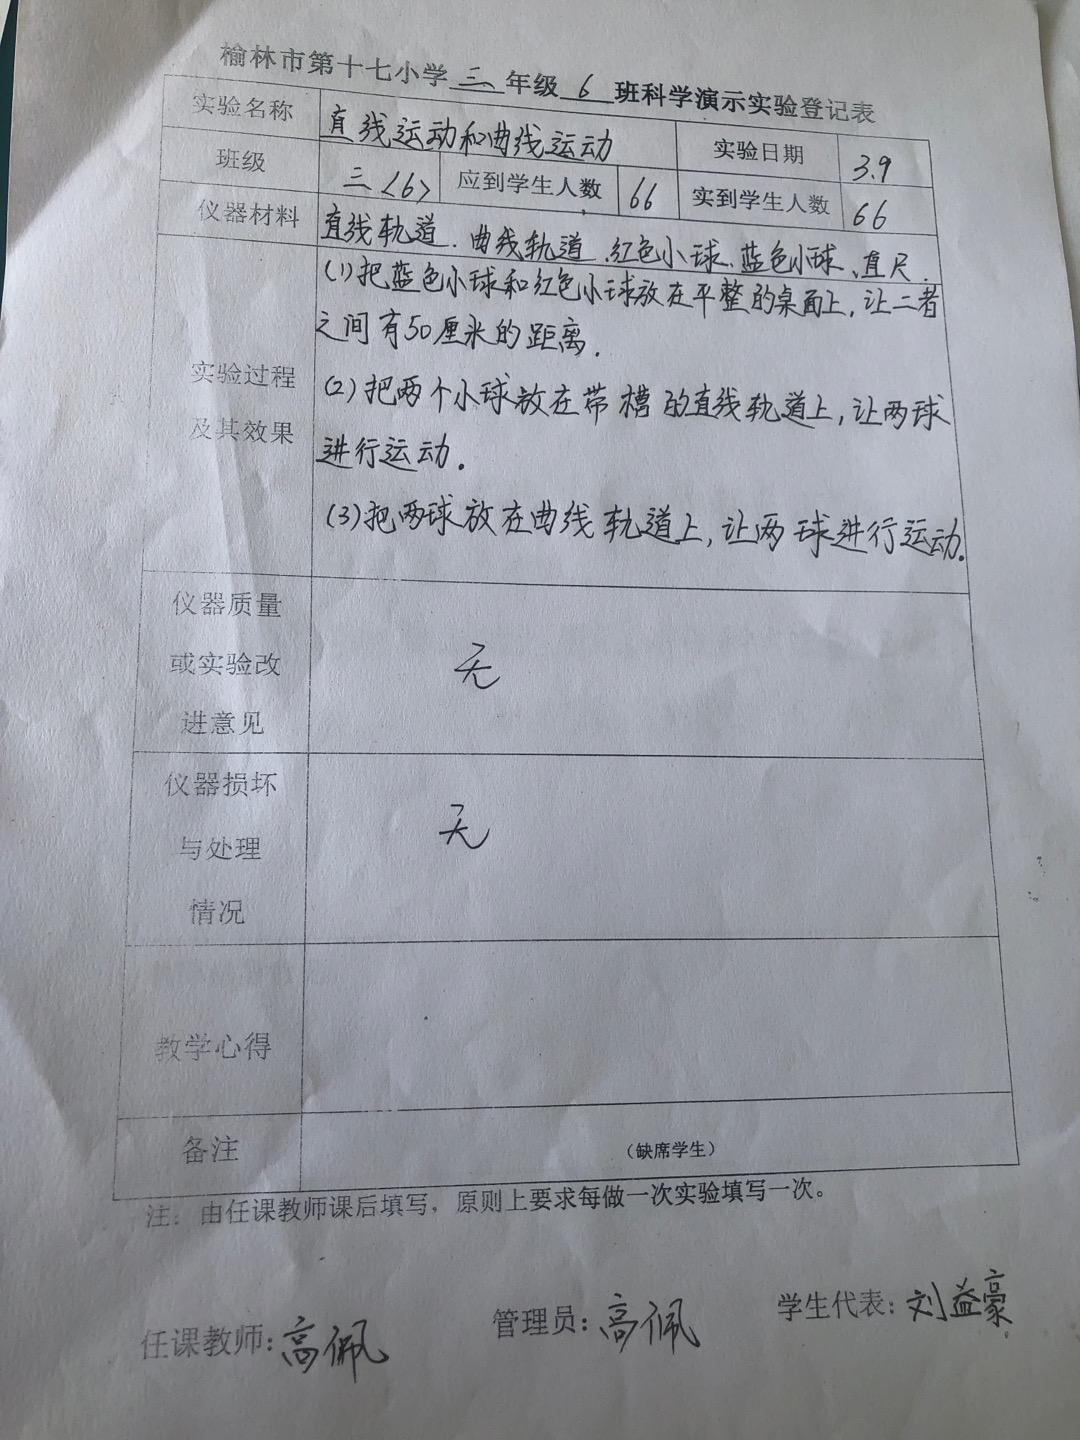 榆林市第十七小学三年级6班科学演示实验登记表
实验名称 直线运动和曲线运动 实验日期 3.9
班级 三〈6〉 应到学生人数 66 实到学生人数 66
仪器材料 直线轨道、曲线轨道、红色小球、蓝色小球、直尺.
实验过程
及其效果
(1)把蓝色小球和红色小球放在平整的桌面上,让二者
之间有50厘米的距离.
(2)把两个小球放在带槽的直线轨道上,让两球
进行运动.
(3)把两球放在曲线轨道上,让两球进行运动.
仪器质量
或实验改
进意见
无
仪器损坏
与处理
情况
无
教学心得
备注 (缺席学生)
注:由任课教师课后填写,原则上要求每做一次实验填写一次。
任课教师:高佩 管理员:高佩 学生代表:刘益豪